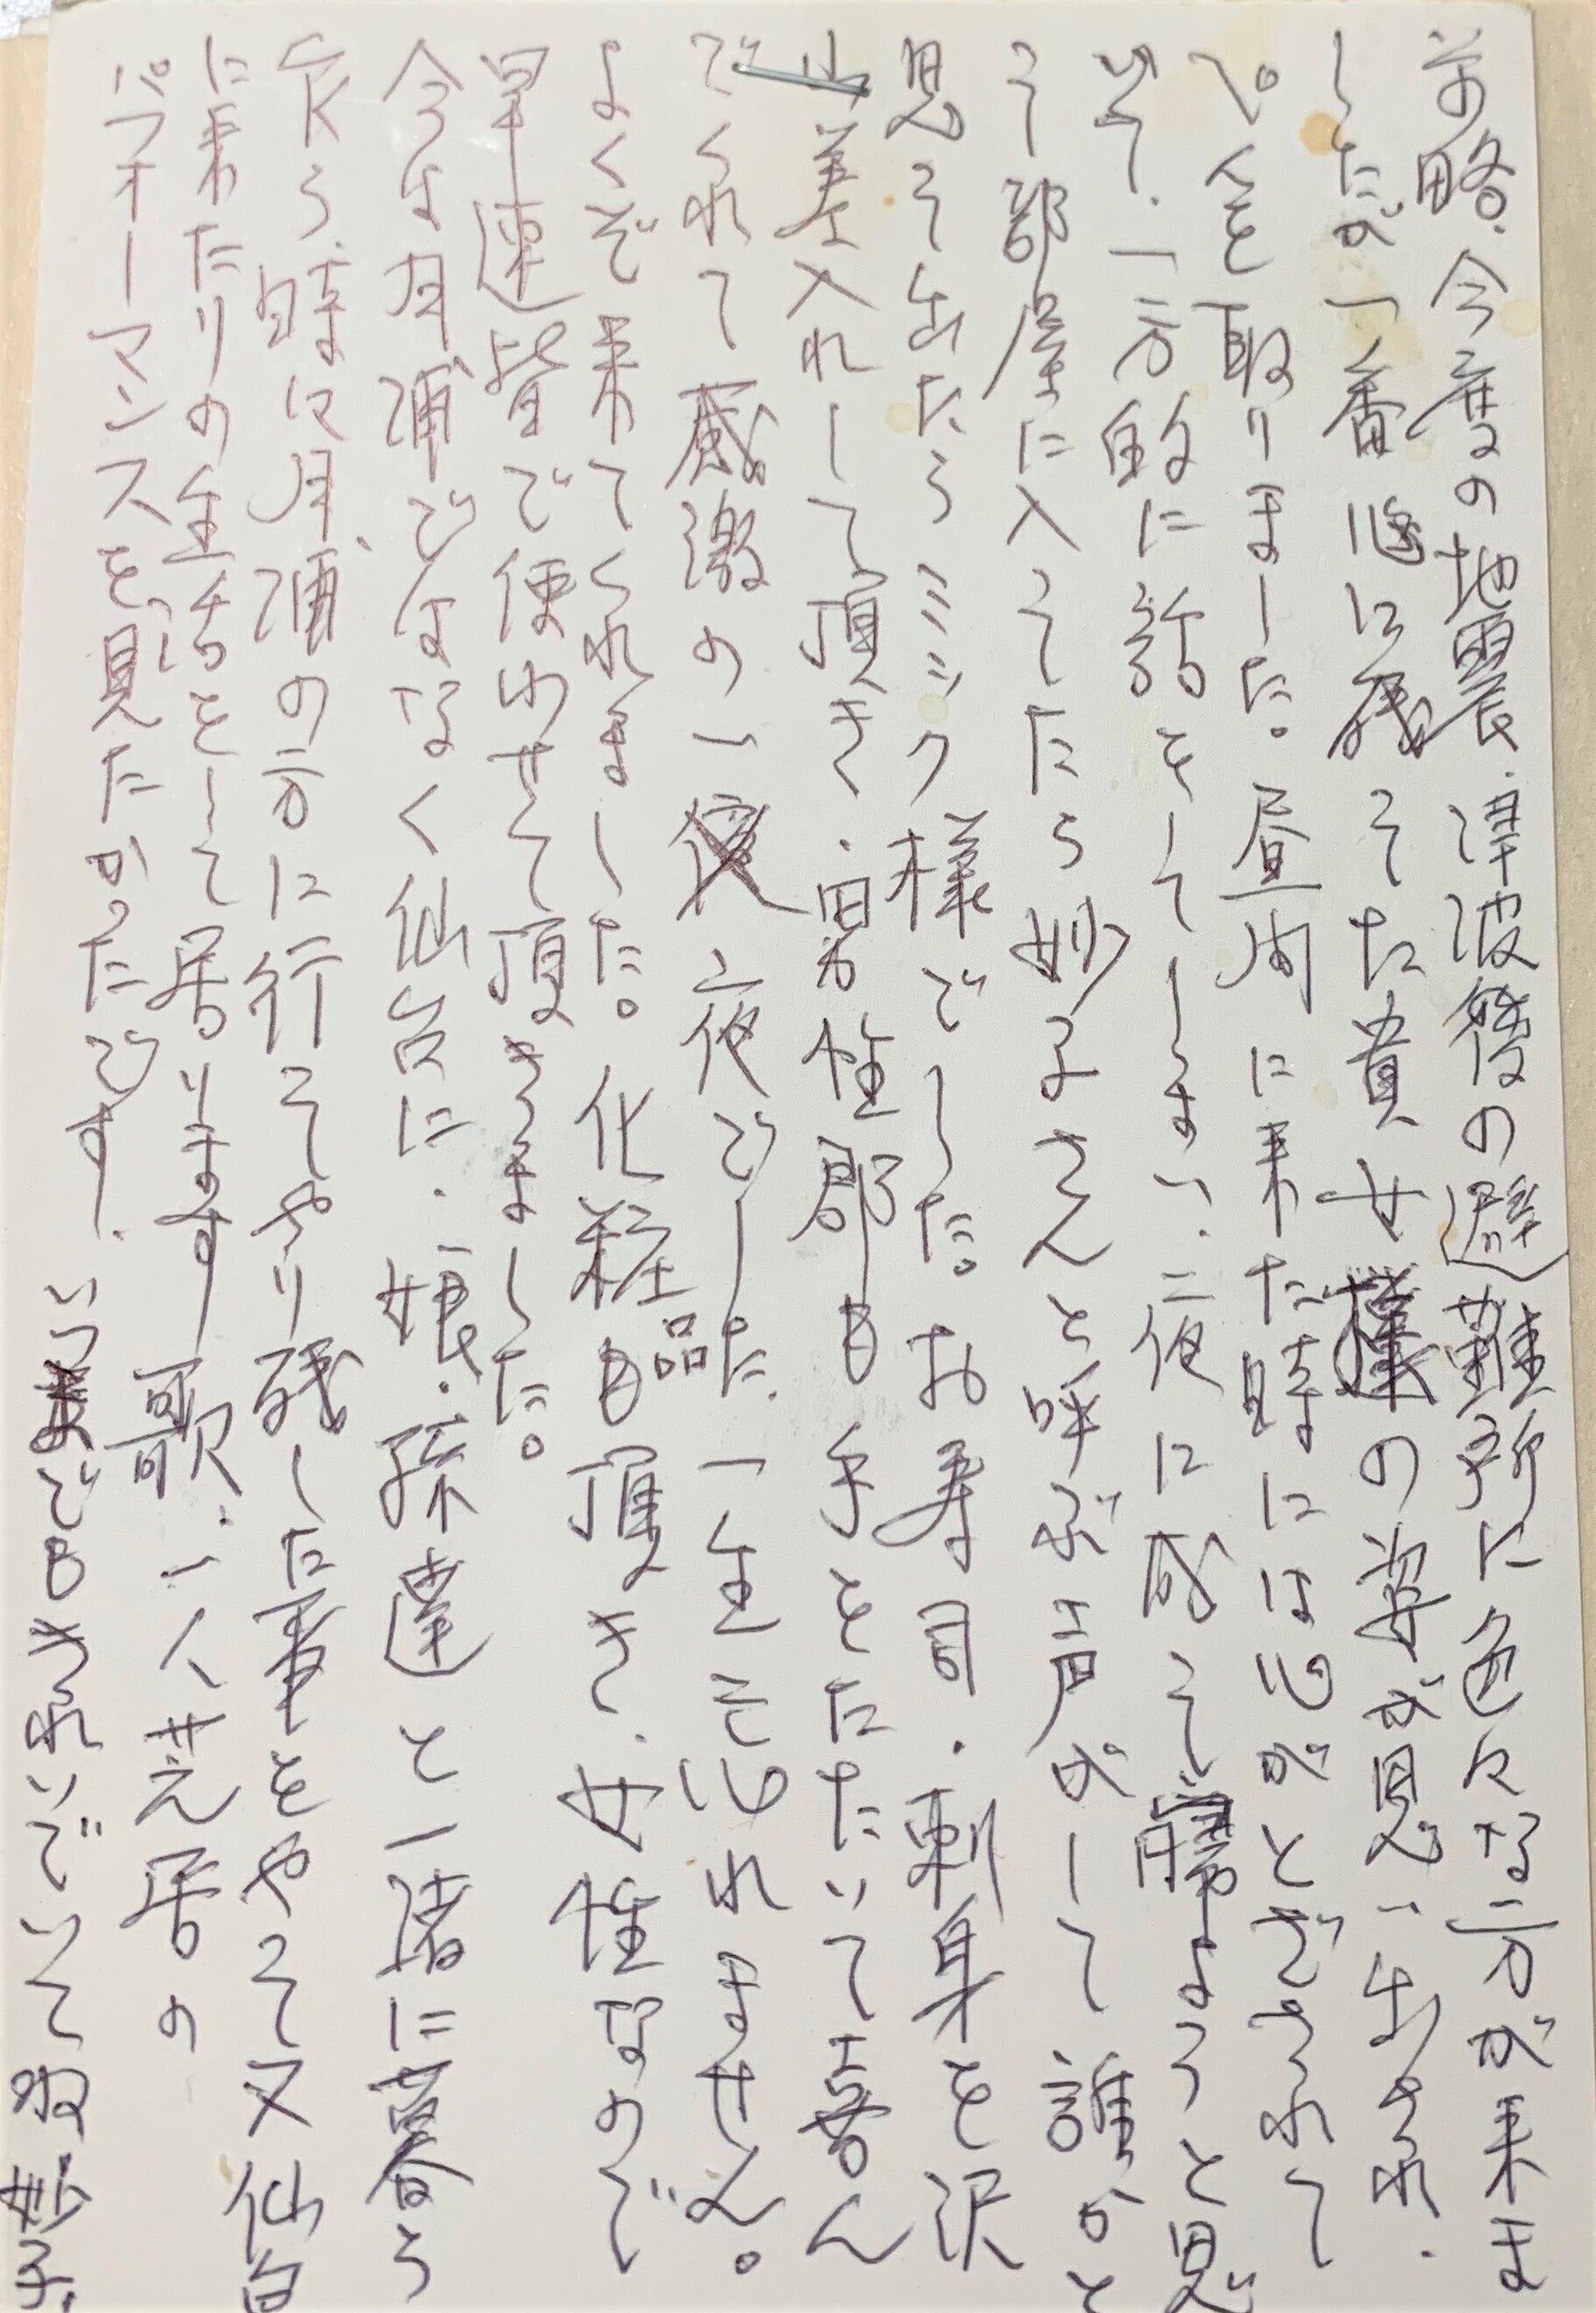 前略、今度の地震、津波後の避難所に色々な方が来ま
したが一番心に残った貴女様の姿が見い出され、
ぺんを取りました。昼間に来た時には心がとざされて
いて、一方的に話をしてしまい、夜に成って寝ようと思
って部屋に入ってたら妙子さんと呼ぶ声がして誰かと
見て出たらミミック様でした。お寿司、刺身を沢
山差入れして頂き、男性郡も手をたたいて喜ん
でくれて感激の一夜でした、一生忘れません。
よくぞ来てくれました。化粧品も頂き、女性なので
早速皆で使わせて頂きました。
今は月浦ではなく仙台に、娘、孫達と一諸に暮ら
し、時には月浦の方に行ってやり残した事をやって又仙台
に来たりの生活をして居ります 歌、一人芝居の
パフォーマンスを見たかったです。
いつまでもきれいでいてね 妙子